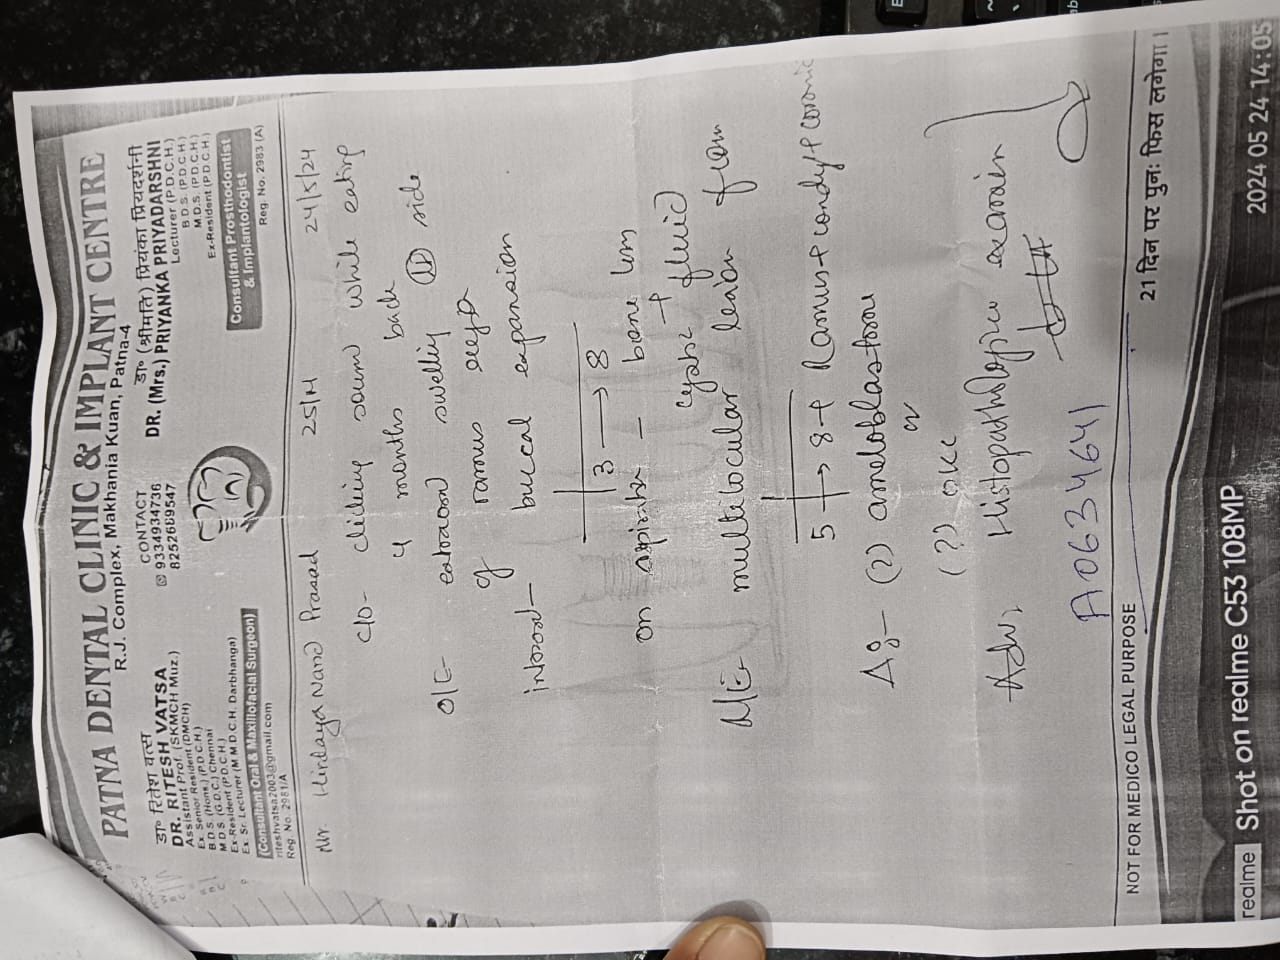 PATNA DENTAL CLINIC & IMPLANT CENTRE
R.J. Complex, Makhania Kuan, Patna-4
डा० रितेश वत्स
DR. RITESH VATSA
Assistant Prof. (SKMCH Muz.)
Ex. Senior Resident (DMCH)
B.D.S. (Hons.) (P.D.C.H.)
M.D.S. (G.D.C.) Chennai
Ex-Resident (P.D.C.H.)
Ex. Sr. Lecturer (M.M.D.C.H. Darbhanga)
(Consultant Oral & Maxillofacial Surgeon)
riteshvatsa2003@gmail.com
Reg. No. 2981/A
CONTACT
9334934736
8252689547
डा० (श्रीमति) प्रियंका प्रियदर्शनी
DR. (Mrs.) PRIYANKA PRIYADARSHNI
Lecturer (P.D.C.H.)
B.D.S. (P.D.C.H.)
M.D.S. (P.D.C.H.)
Ex-Resident (P.D.C.H.)
Consultant Prosthodontist
& Implantologist
Reg. No. 2983 (A)
Mr. Hirdaya Nand Prasad 25/M 24/5/24
c/o- clicking sound while eating
4 months back
O/E- extraoral swelling side
of ramus
intraoral- buccal expansion
3 → 8
on aspiration - bone
cystic fluid
multilocular lesion from
5 → 8 + Ramus + condyle +
Δs- (?) ameloblastoma
or
(??) OKC
Adv, Histopathologic examin
A0634641
NOT FOR MEDICO LEGAL PURPOSE
21 दिन पर पुनः फिस लगेगा।
realme Shot on realme C53 108MP
2024 05 24 14:05